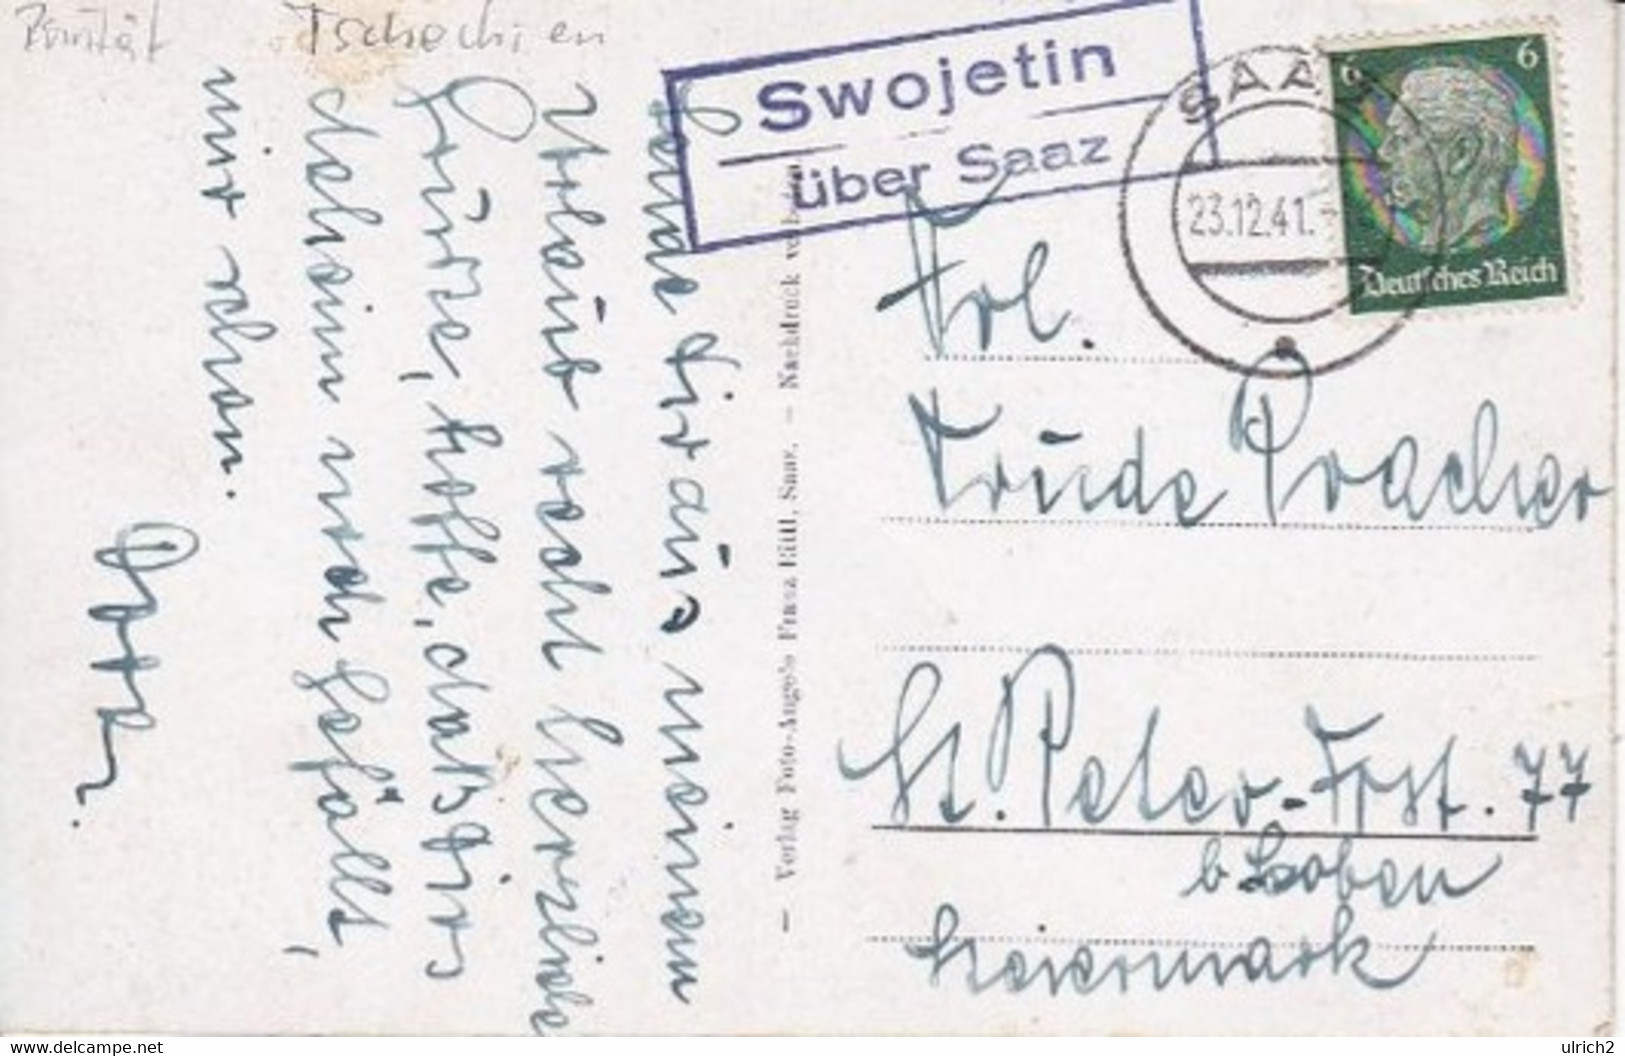 Rarität
Tschechien
Swojetin
über Saaz
SAAZ
23.12.41.
6 6
Deutsches Reich
Sende Dir aus meinem
Urlaub recht herzliche
Grüsse, hoffe, daß Dirs
daheim noch gefällt,
mir schon.
— Verlag Foto-Angelo Franz Eittl, Saaz. — Nachdruck verboten
Frl.
Trude Pracher
St. Peter-Frst. 77
b. Leoben
Steiermark
www.delcampe.net
ulrich2